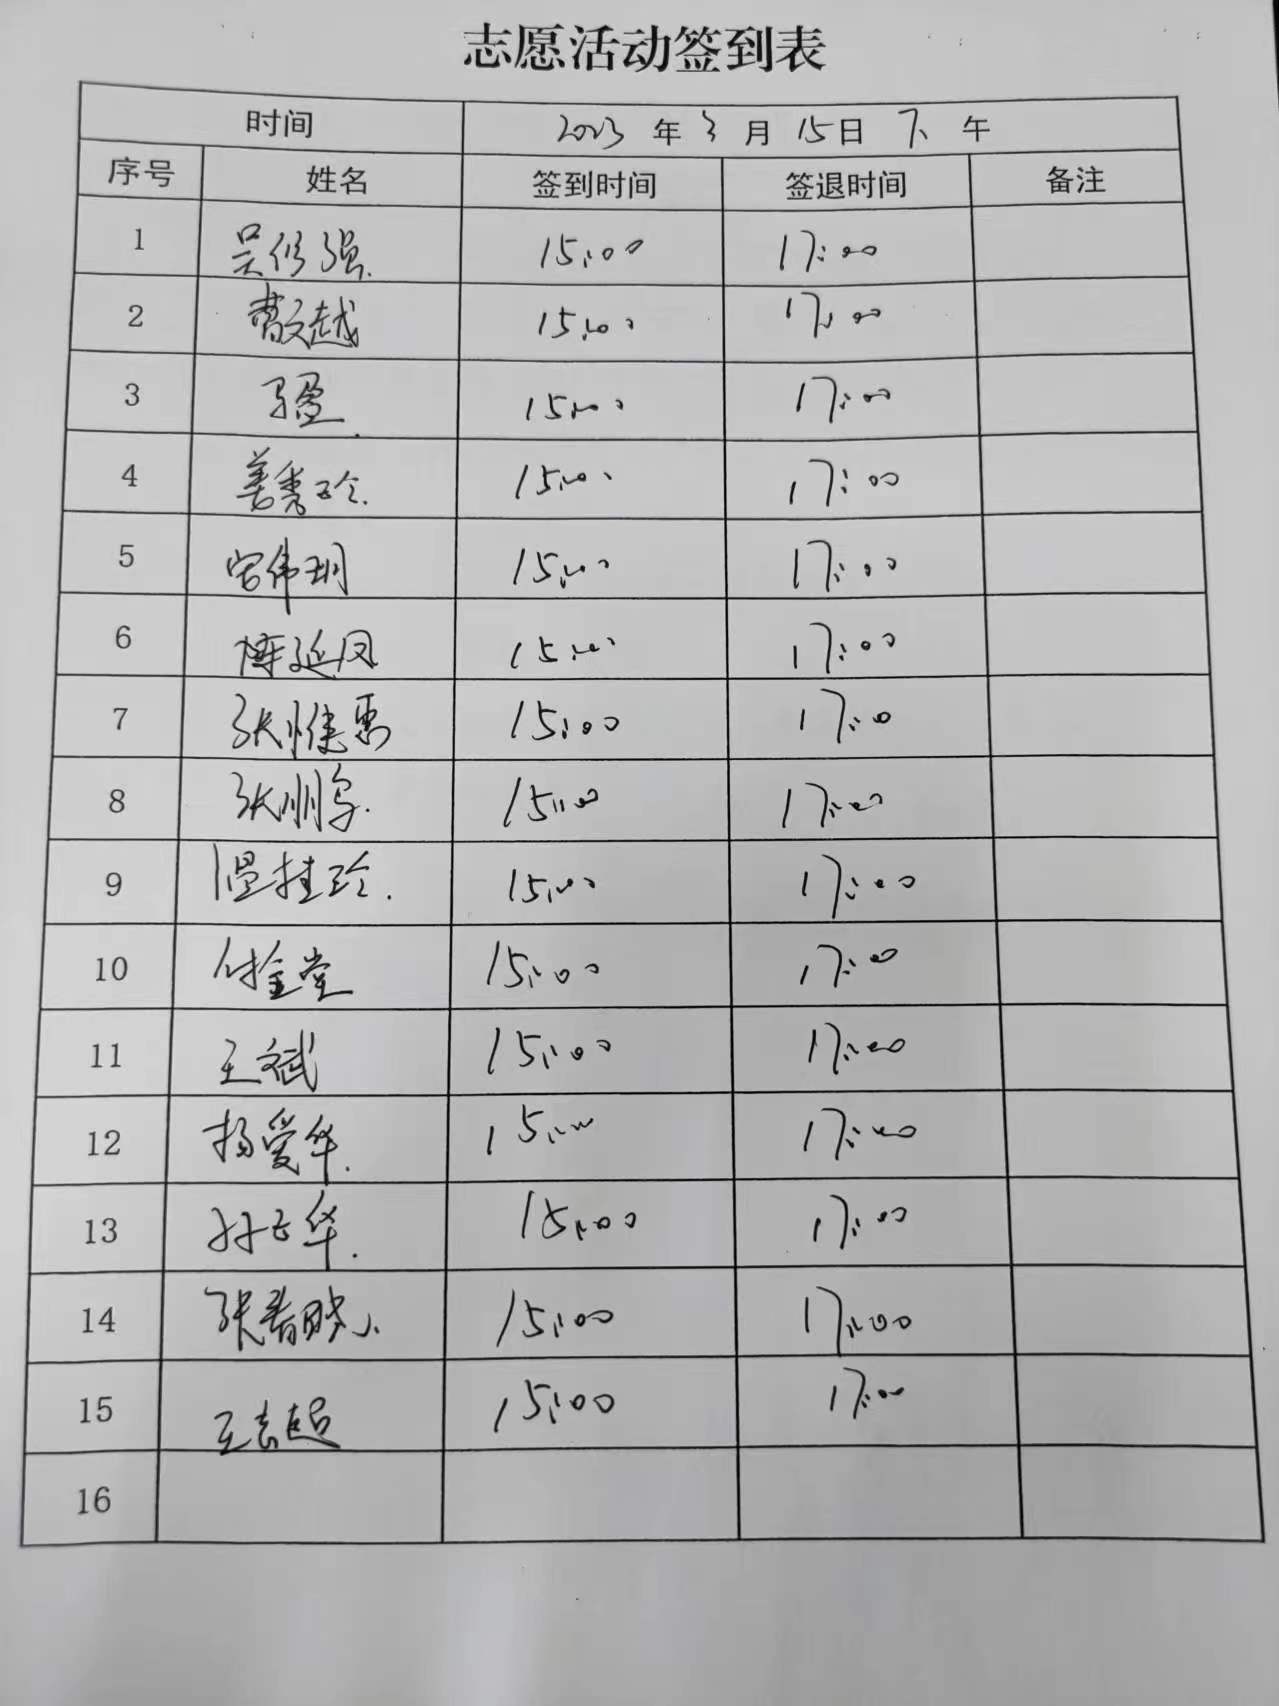 志愿活动签到表
时间 2023 年 3 月 15 日 下 午
序号 姓名 签到时间 签退时间 备注
1 吴修强 15:00 17:00
2 曹文越 15:00 17:00
3 马盈 15:00 17:00
4 姜秀玲 15:00 17:00
5 宫伟玥 15:00 17:00
6 陈延凤 15:00 17:00
7 张惟惠 15:00 17:00
8 张刚 15:00 17:00
9 温桂玲 15:00 17:00
10 付金堂 15:00 17:00
11 王斌 15:00 17:00
12 杨爱华 15:00 17:00
13 孙云华 15:00 17:00
14 张春晓 15:00 17:00
15 王志超 15:00 17:00
16